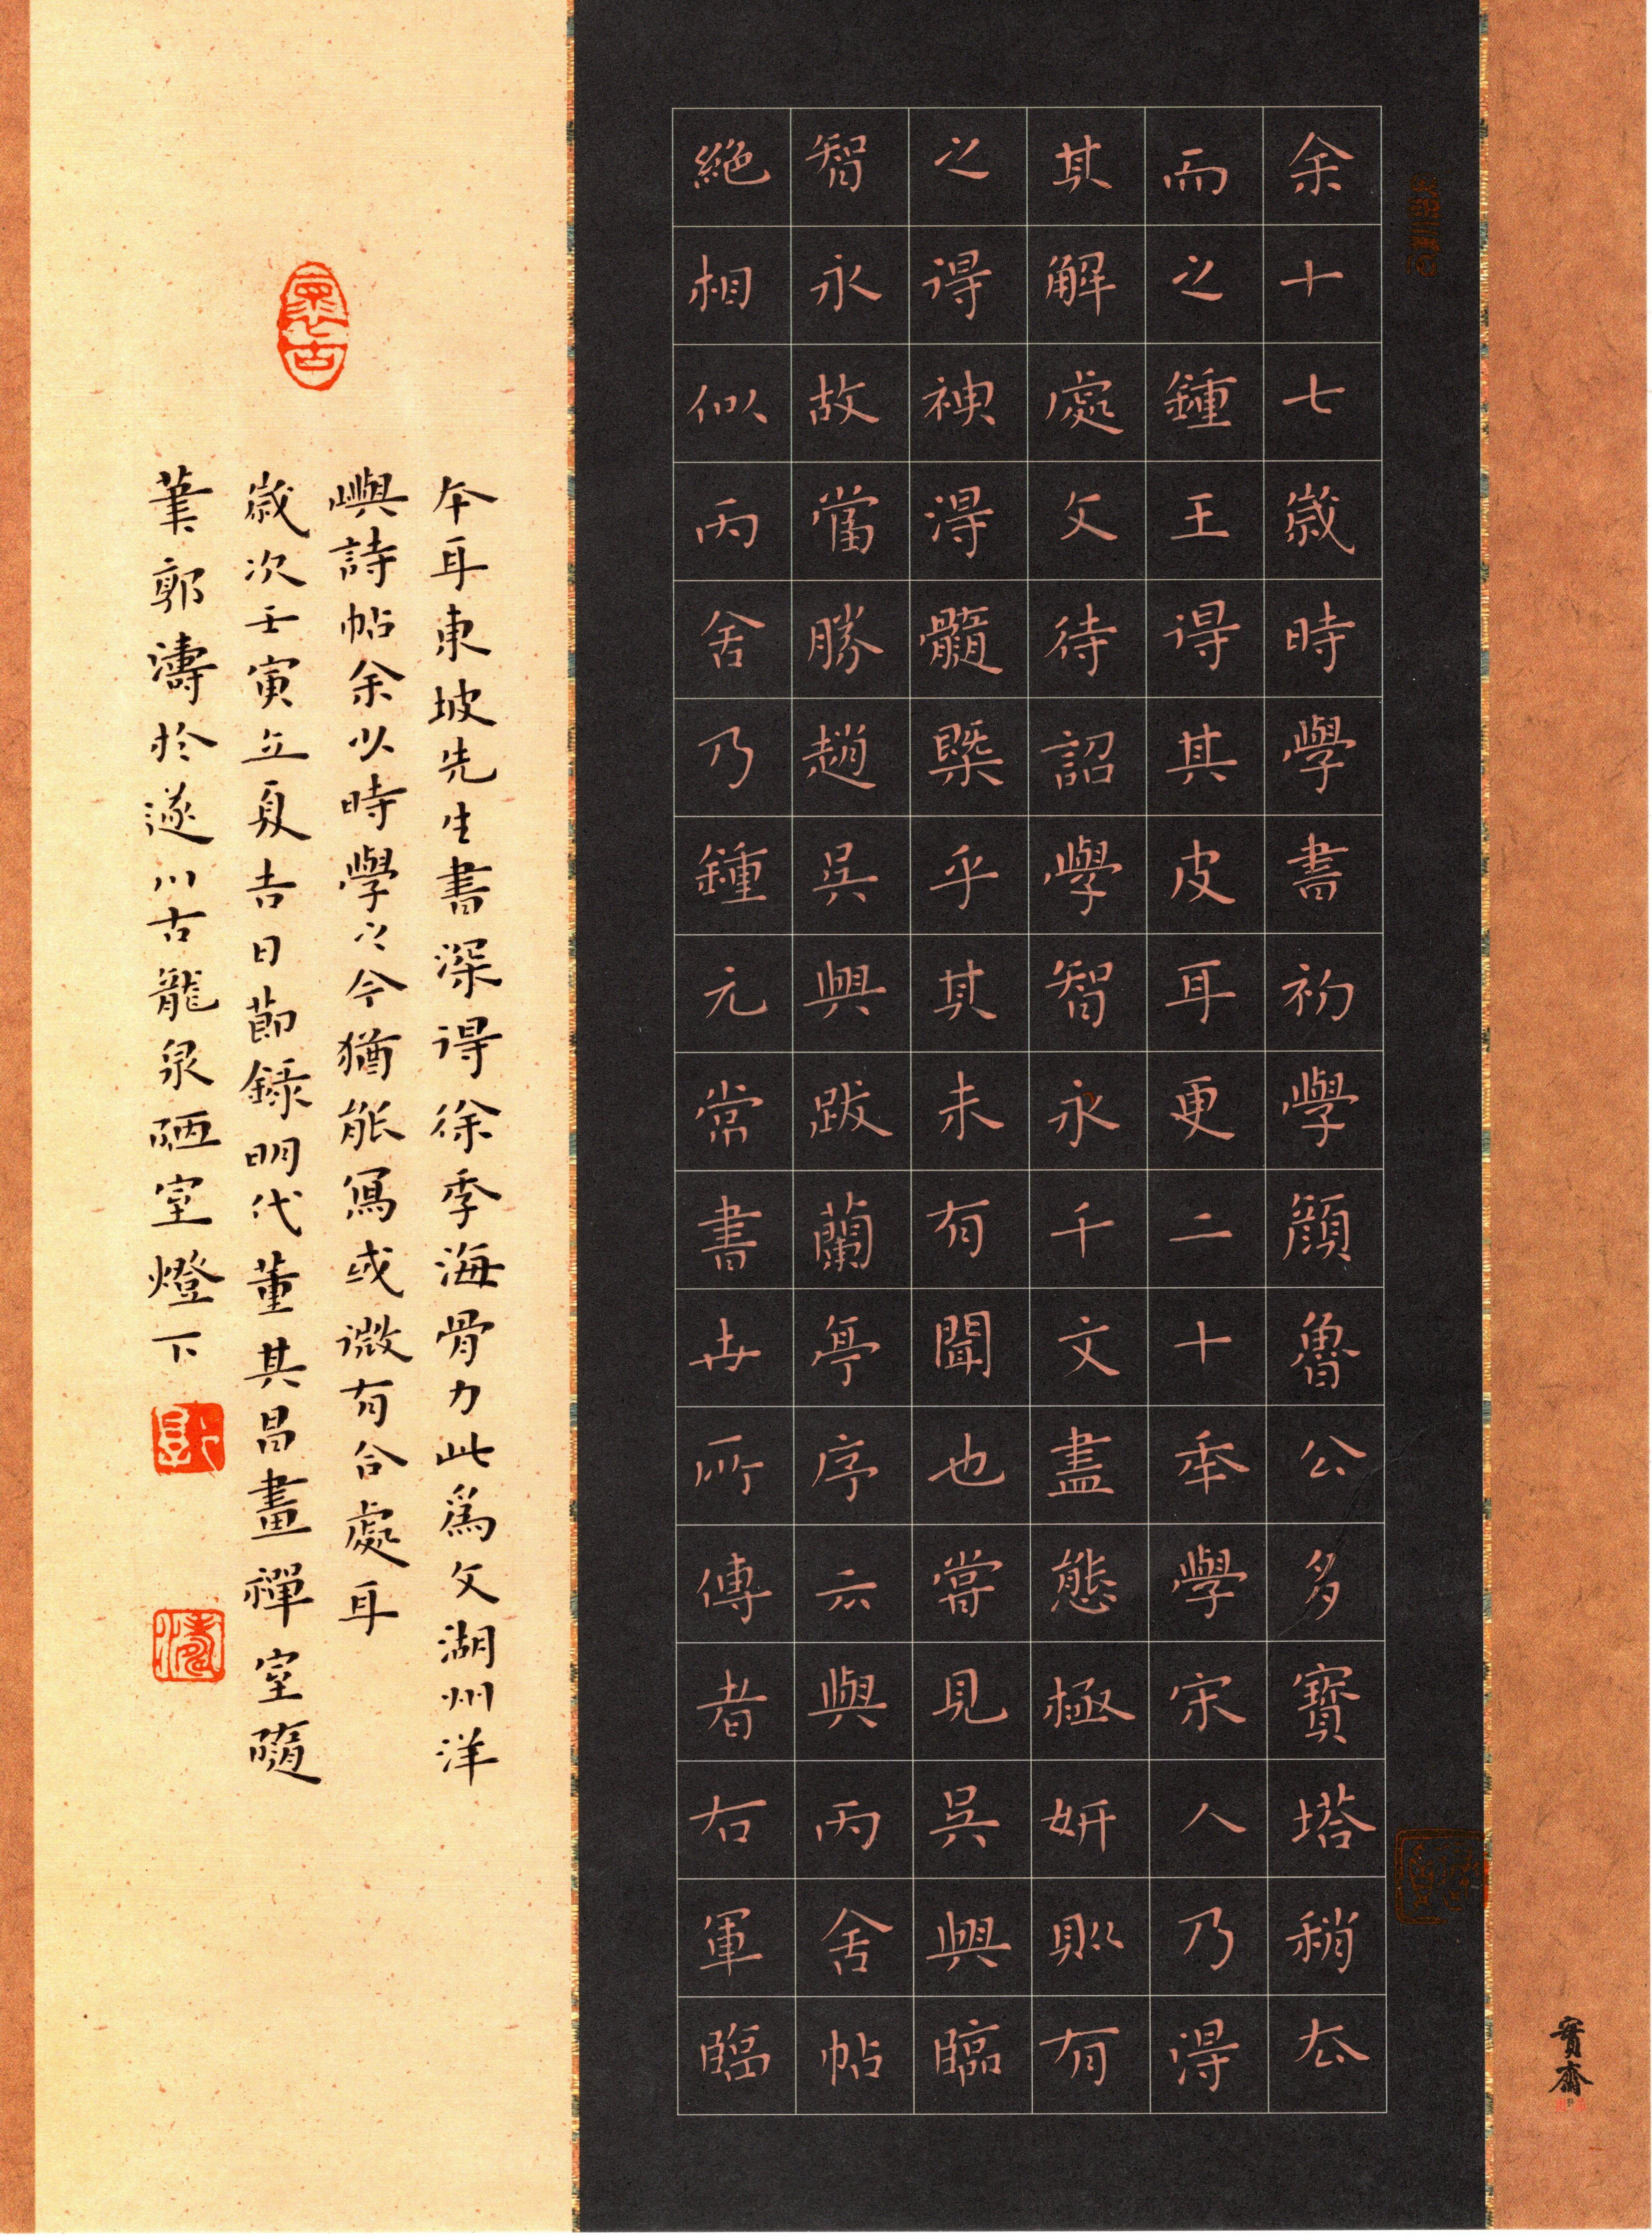 余十七歲時學書初學顏魯公多寶塔稍去
而之鍾王得其皮耳更二十年學宋人乃得
其解處文待詔學智永千文盡態極妍則有
之得神得髓槩乎其未有聞也嘗見吳興臨
智永故當勝趙吳興跋蘭亭序云與丙舍帖
絕相似丙舍乃鍾元常書世所傳者右軍臨
本耳東坡先生書深得徐季海骨力此為文湖州洋
嶼詩帖余少時學之今猶能寫或微有合處耳
歲次壬寅立夏吉日節錄明代董其昌畫禪室隨
筆郭濤於遂川古龍泉陋室燈下
寶齋